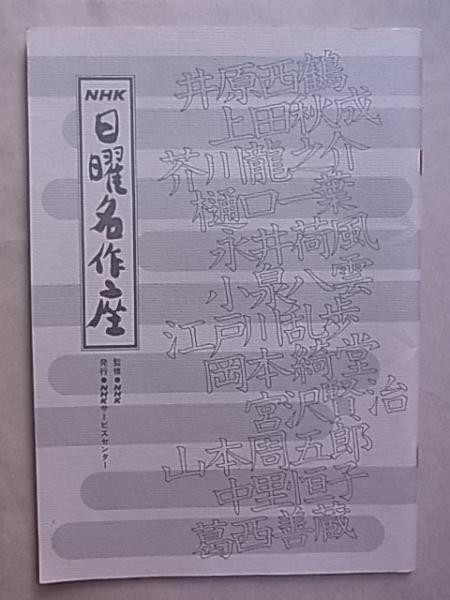 NHK
日曜名作座
監修●NHK
発行●NHKサービスセンター
井原西鶴
上田秋成
芥川龍之介
樋口一葉
永井荷風
小泉八雲
江戸川乱歩
岡本綺堂
宮沢賢治
山本周五郎
中里恒子
葛西善蔵